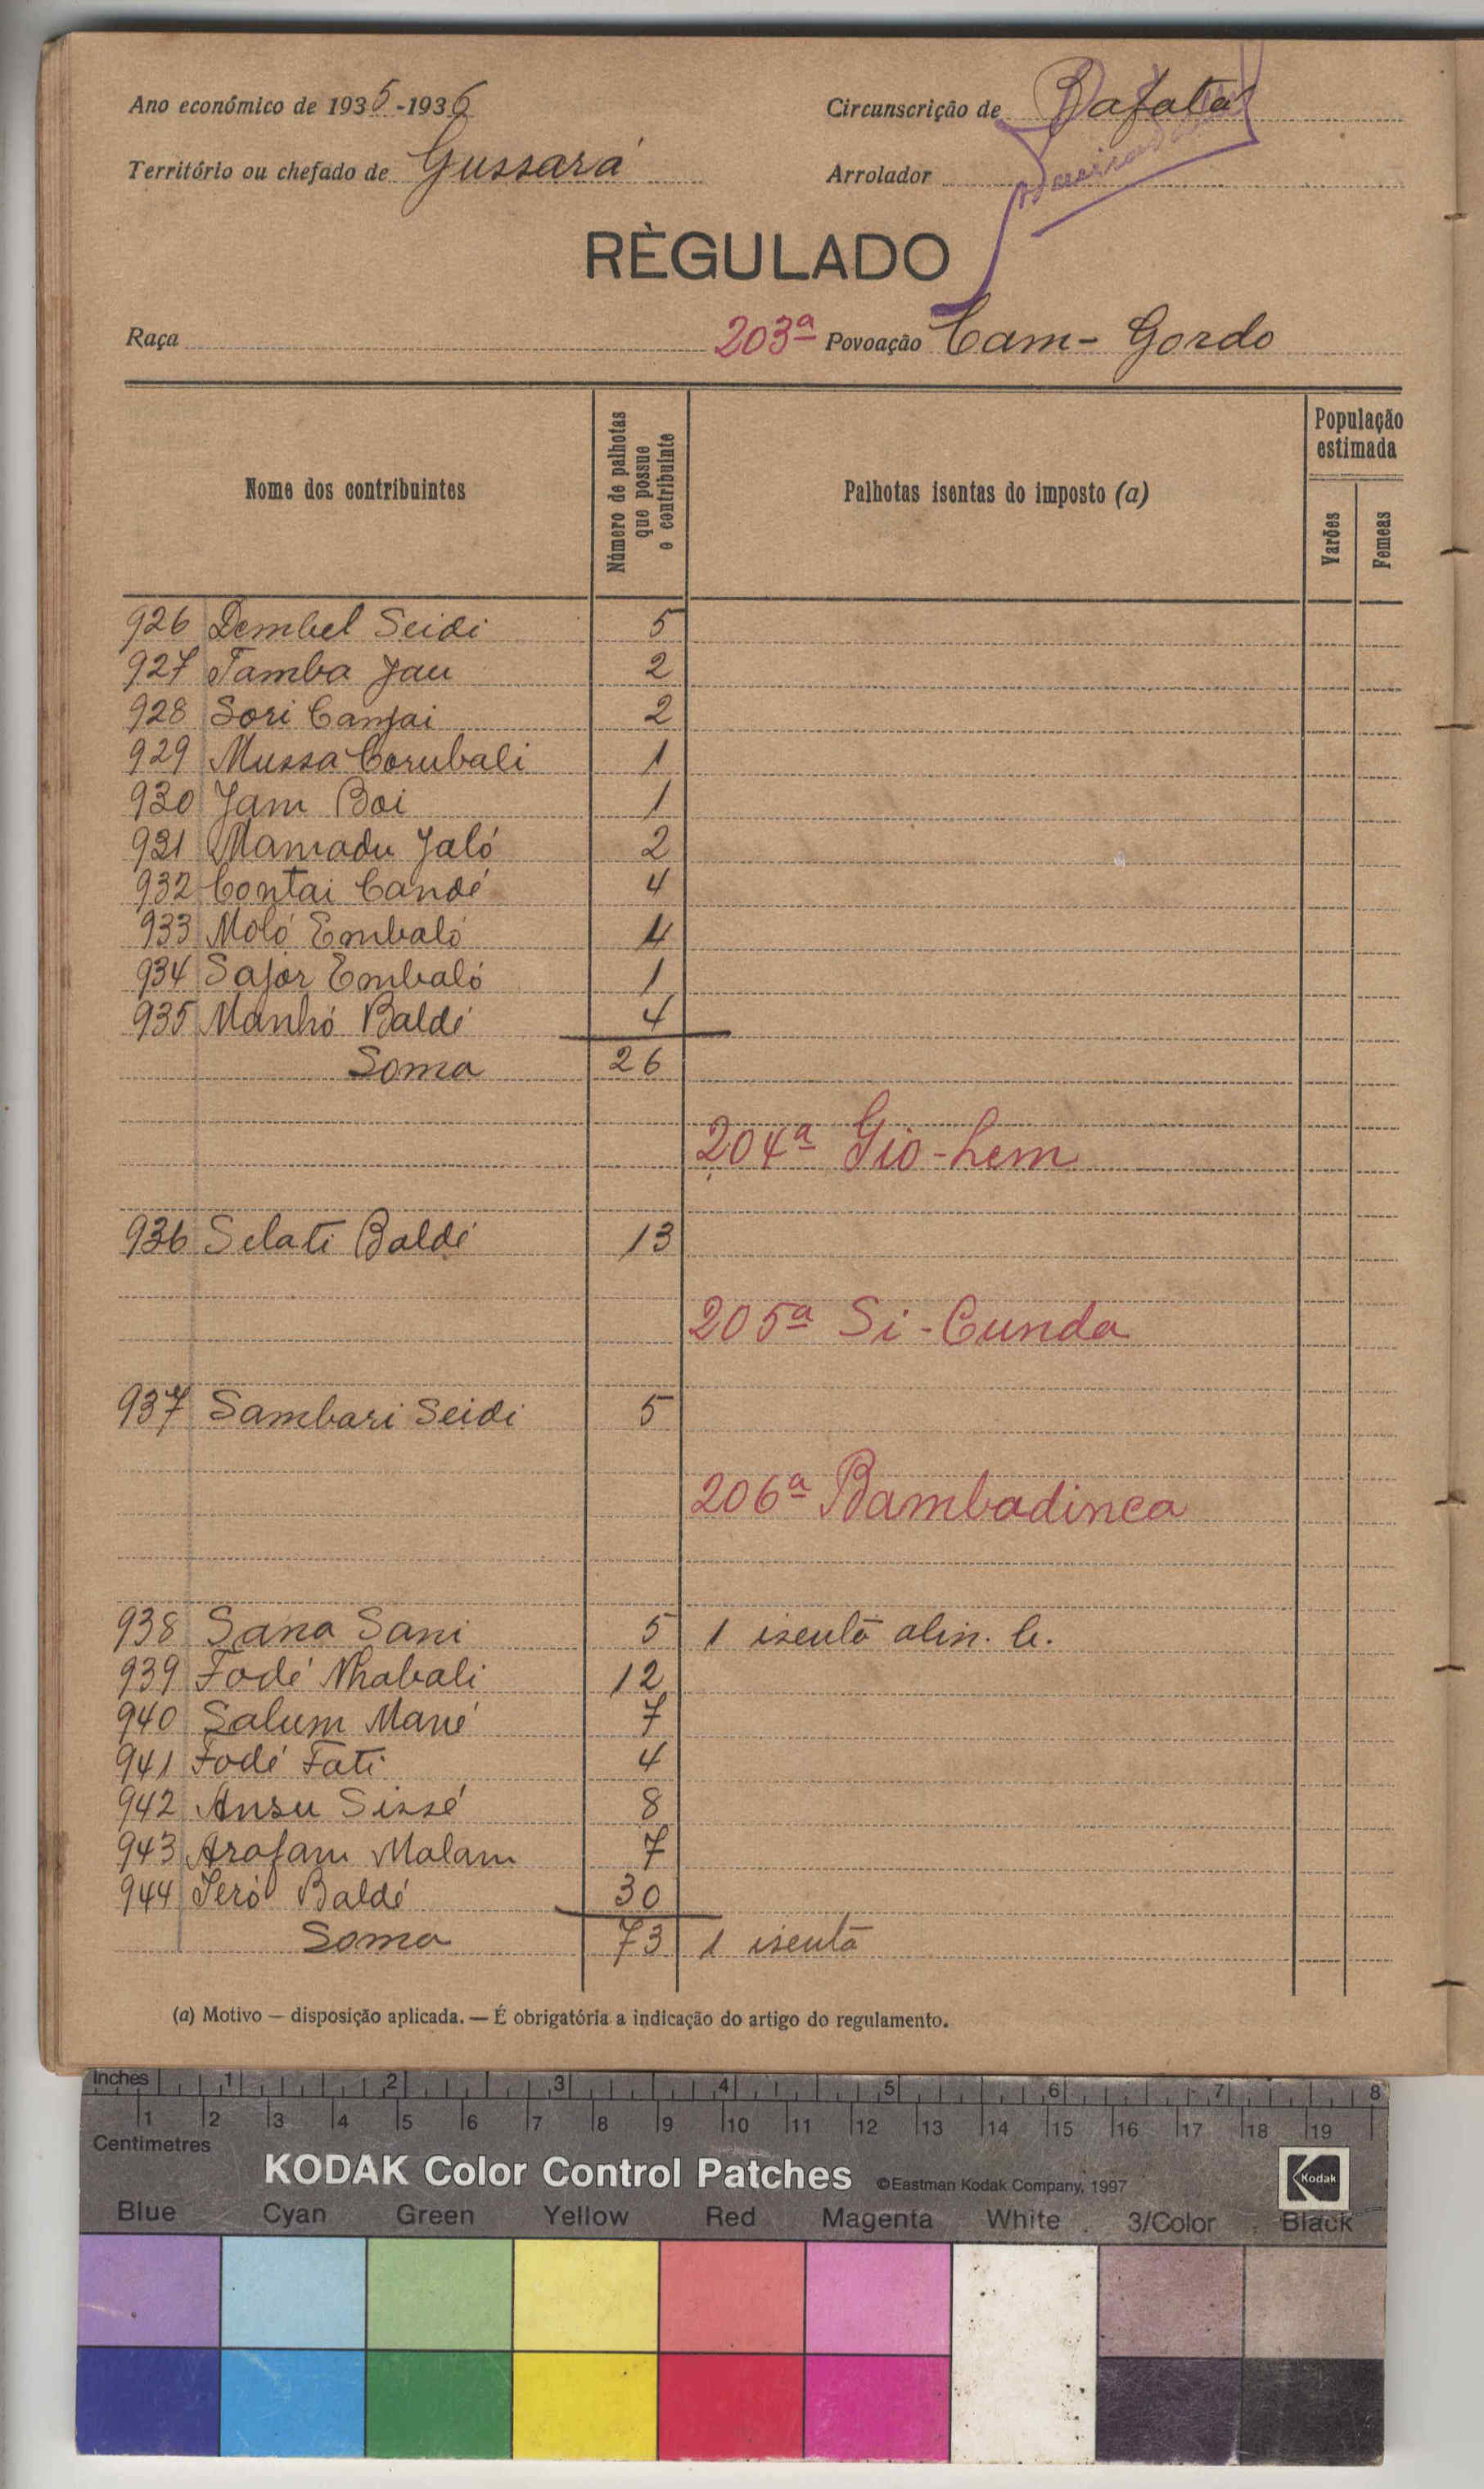 Ano económico de 1935-1936
Circunscrição de Bafatá
Território ou chefado de Gussará
Arrolador
RÈGULADO
Raça
203ª Povoação Cam-Gordo
Nome dos contribuintes
Número de palhotas que possue o contribuinte
Palhotas isentas do imposto (a)
População estimada
Varões
Femeas
926 Dembel Seidi 5
927 Tamba Jau 2
928 Sori Camjai 2
929 Mussa Corubali 1
930 Jam Boi 1
931 Mamadu Jaló 2
932 Contai Candé 4
933 Moló Embaló 4
934 Sajor Embaló 1
935 Manhó Baldé 4
Soma 26
204ª Gio-Lem
936 Selati Baldé 13
205ª Si-Cunda
937 Sambari Seidi 5
206ª Bambadinca
938 Sana Sani 5 1 isentã alin. b.
939 Fodé Nhabali 12
940 Salum Mané 7
941 Fodé Fati 4
942 Ansu Sissé 8
943 Arafam Malam 7
944 Ieró Baldé 30
Soma 73 1 isentã
(a) Motivo — disposição aplicada. — É obrigatória a indicação do artigo do regulamento.
Inches 1 2 3 4 5 6 7 8
1 2 3 4 5 6 7 8 9 10 11 12 13 14 15 16 17 18 19
Centimetres
KODAK Color Control Patches ©Eastman Kodak Company, 1997 Kodak
Blue Cyan Green Yellow Red Magenta White 3/Color Black